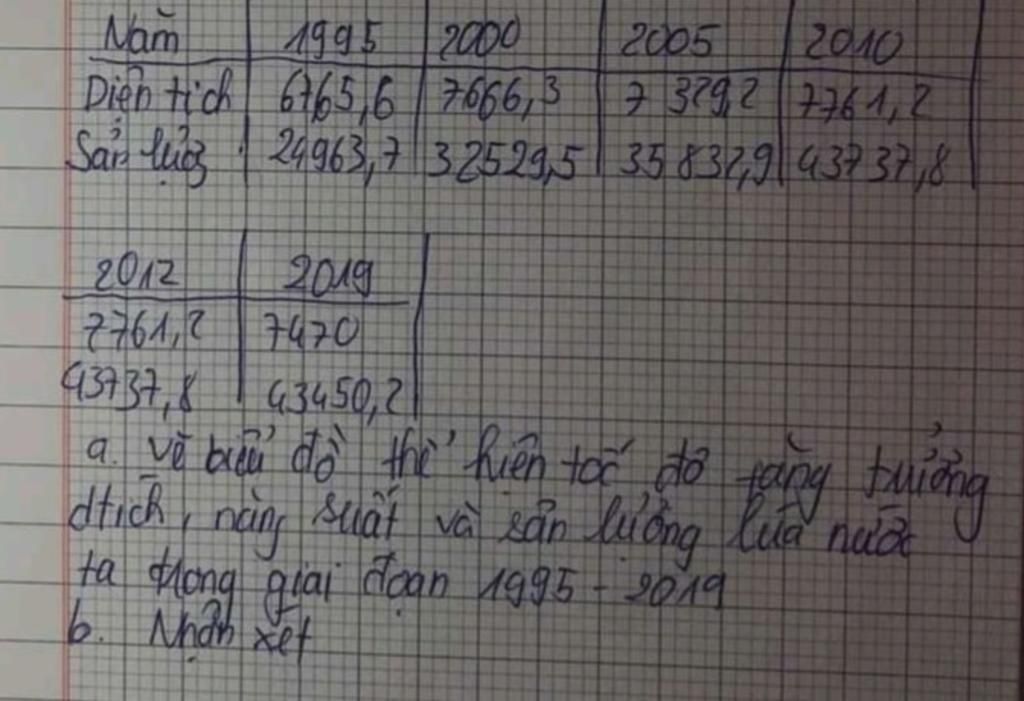 Năm 1995 2000 2005 2010
Diện tích 6765,6 7666,3 7 329,2 7761,2
Sản lượng 24963,7 32529,5 35 832,9 43737,8
2012 2019
7761,2 7470
43737,8 43450,2
a. vẽ biểu đồ thể hiện tốc độ tăng trưởng
dtích, năng suất và sản lượng lúa nước
ta trong giai đoạn 1995 - 2019
b. Nhận xét